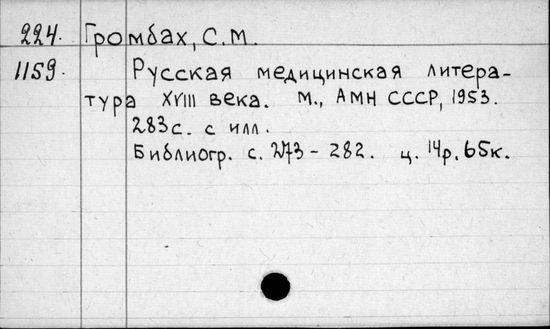 224. Громбах, С.М.
1159. Русская медицинская литера-
тура XVIII века. М., АМН СССР, 1953.
283с. с илл.
Библиогр. с. 273-282. ц. 14р. 65к.